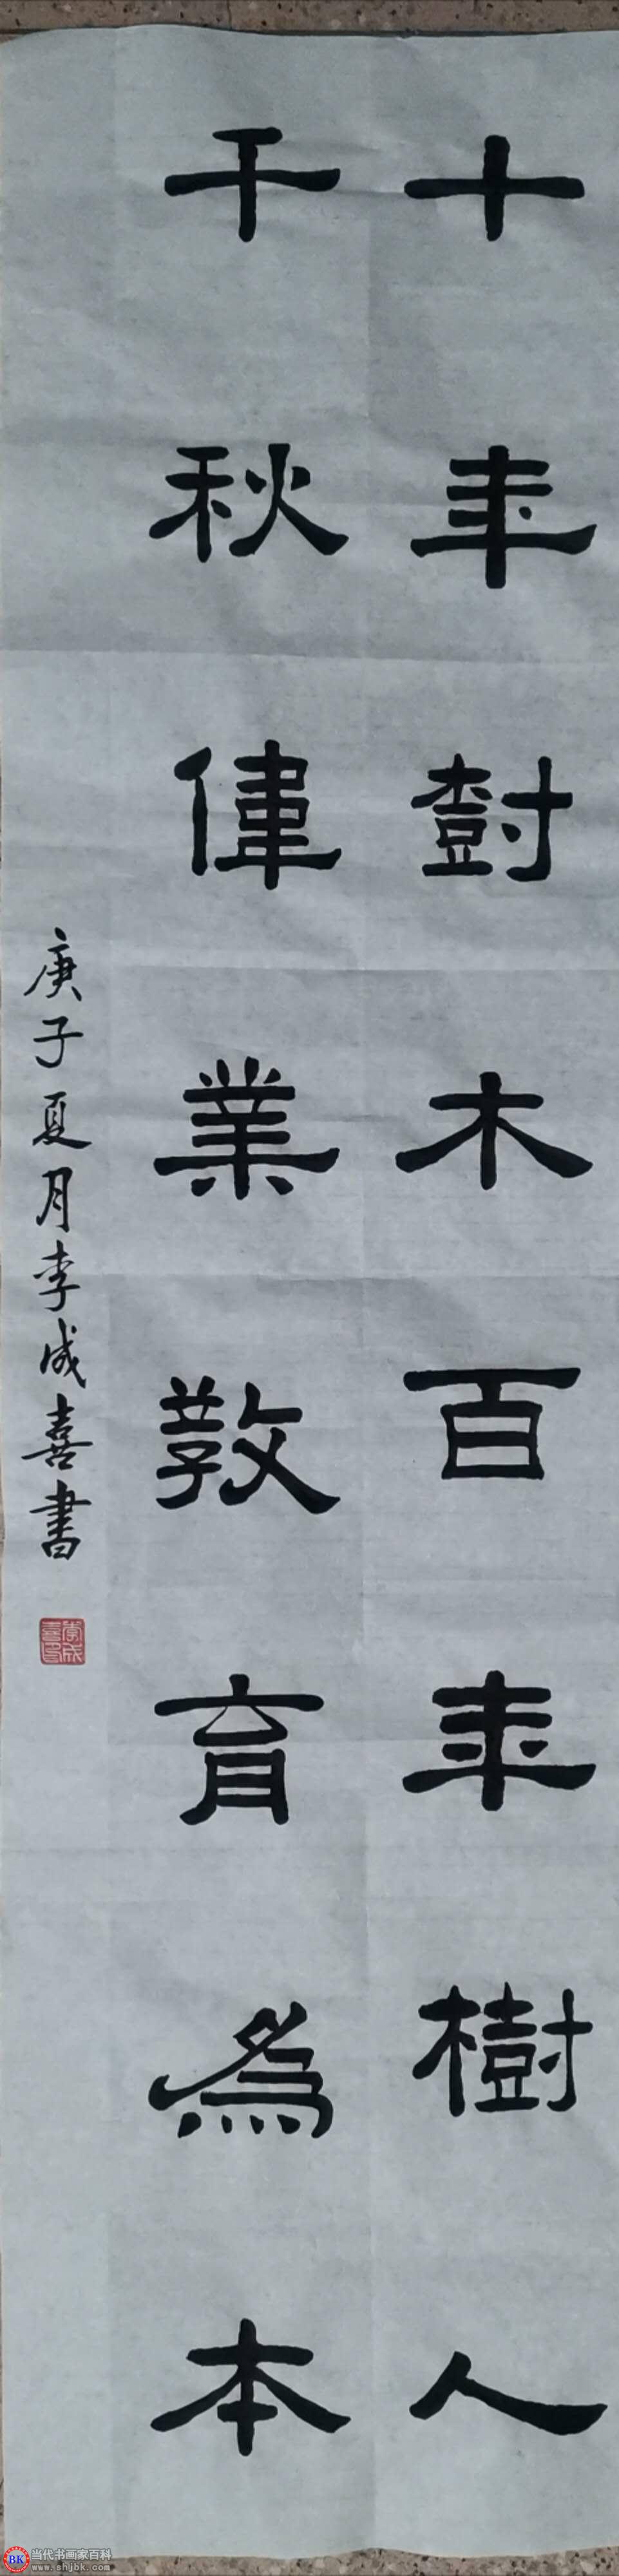 十年樹木百年樹人
千秋偉業教育為本
庚子夏月李成喜書
李成喜印
BK 当代书画家百科
www.shjbk.com